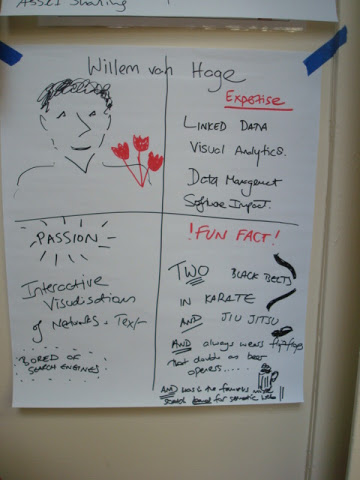 ASSET Sharing
Willem van Hage
Expertise
LINKED DATA
Visual Analytics.
Data Management
Software Impact.
PASSION
Interactive
Visualisations
of Networks + Text
BORED OF
SEARCH ENGINES
!FUN FACT!
TWO BLACK BELTS
IN KARATE
AND JIU JITSU
AND always wears flipflops
That double as beer
openers.....
AND has the famous
search for semantic web!!